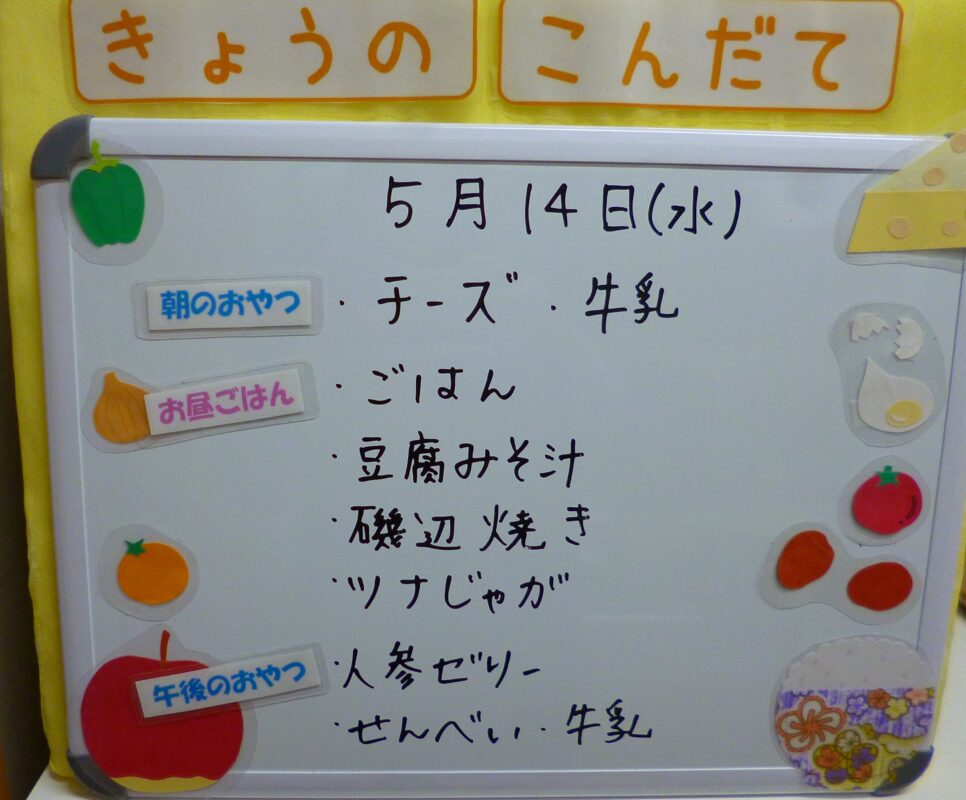 きょうの こんだて
5月14日(水)
朝のおやつ ・チーズ・牛乳
お昼ごはん ・ごはん
・豆腐みそ汁
・磯辺焼き
・ツナじゃが
午後のおやつ ・人参ゼリー
・せんべい・牛乳